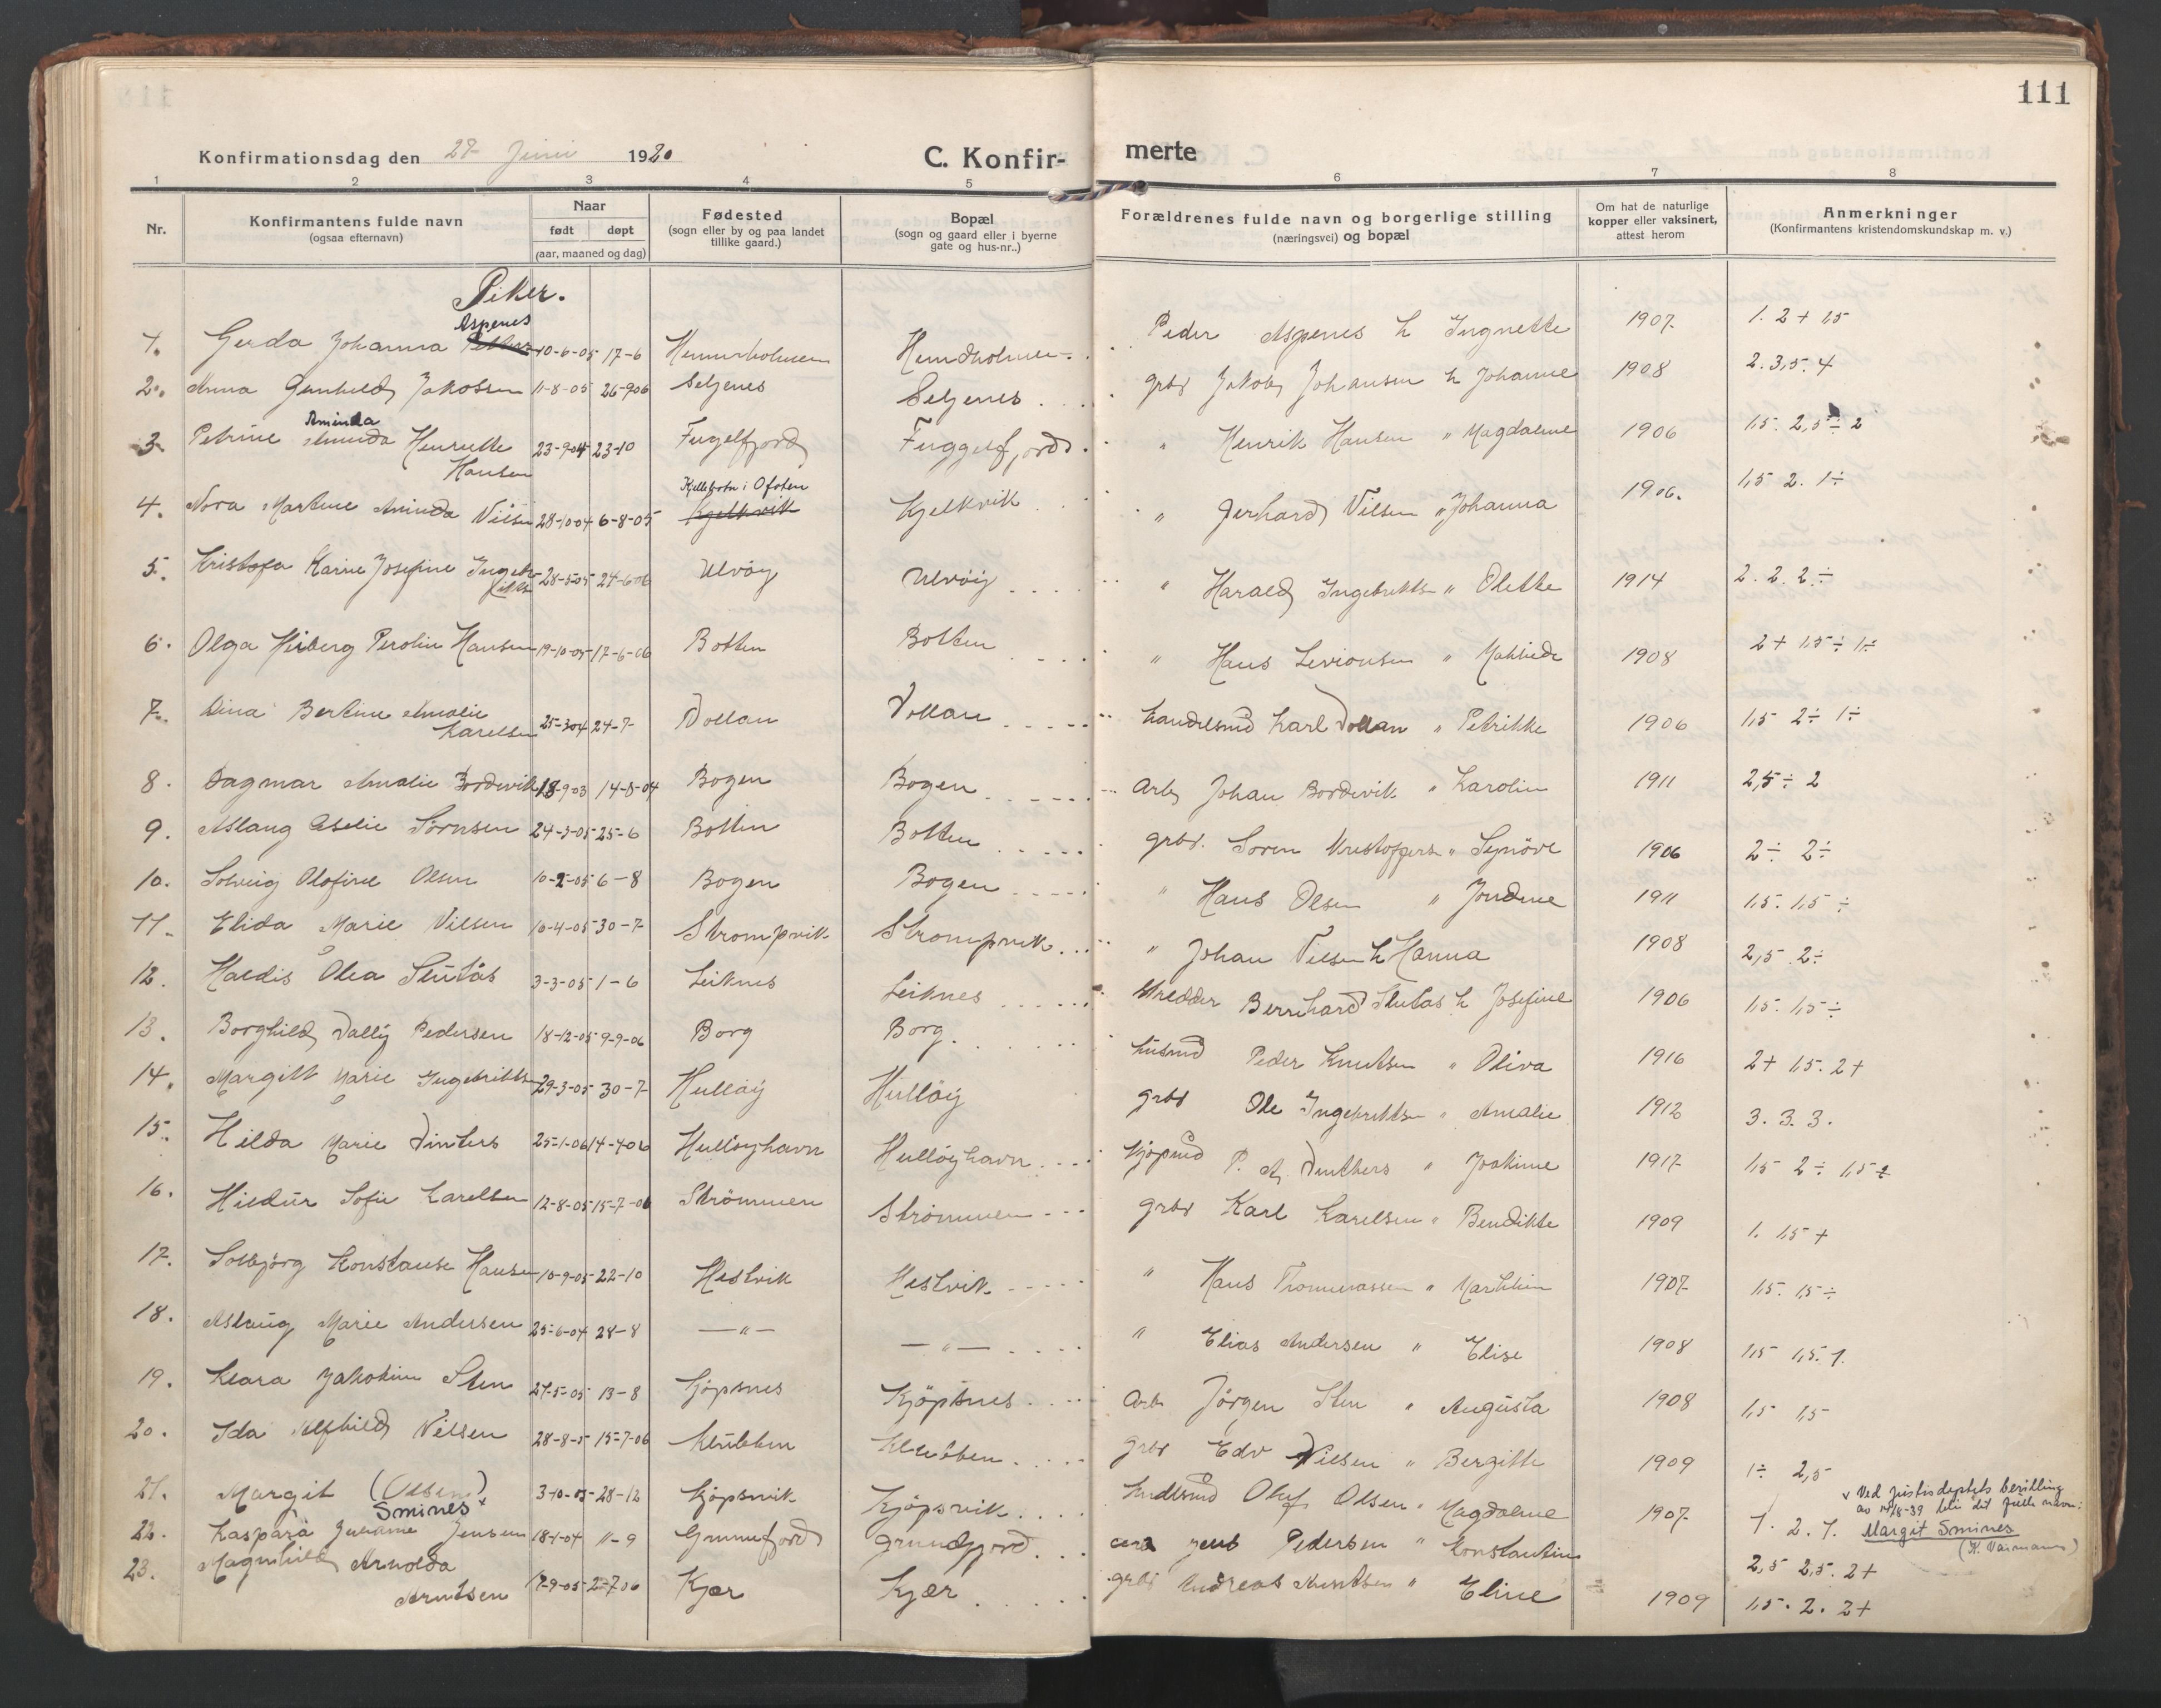 111
Konfirmationsdag den 27- Juni 1920
C. Konfir-merte
1 2 3 4 5 6 7 8
Nr. Konfirmantens fulde navn (ogsaa efternavn) Naar født døpt (aar, maaned og dag) Fødested (sogn eller by og paa landet tillike gaard.) Bopæl (sogn og gaard eller i byerne gate og hus-nr..) Forældrenes fulde navn og borgerlige stilling (næringsvei) og bopæl Om hat de naturlige kopper eller vaksinert, attest herom Anmerkninger (Konfirmantens kristendomskundskap m. v.)
Piker.
Aspenes
1. Gerda Johanna 10-6-05 17-6 Peder Aspenes h Ingnette 1907. 1. 2+ 1,5
2. Anna Gunhild Jakobsen 11-8-05 26-9 06 Seljenes Seljenes grbr Jakob Johansen h Johanne 1908 2. 3,5. 4
Aminda
3. Petrine Aminda Henrette 23-9-04 23-10 Fugelfjord Fuggelfjord " Henrik Hansen " Magdalene 1906 1,5. 2,5÷ 2
Hansen
Kjellebotn i Ofoten
4. Nora Martine Aminda Nilsen 28-10-04 6-8-05 Kjelkvik Kjelkvik " Gerhard Nilsen " Johanna 1906. 1,5 2. 1÷
5. Kristofa Karine Josefine Ingebriktsn 28-5-05 24-6-06 Ulvöy Ulvöy " Harald Ingebriktsn " Olette 1914 2. 2. 2.÷
6. Olga Perolin Hansen 19-10-05 17-6-06 Botten Botten " Hans " 1908 2+ 1,5÷ 1÷
7. Dina Bertine Amalie 25-3-04 24-7- Vollan Vollan handelsmd Karl Vollan " Petrikke 1906 1,5 2÷ 1÷
Karelsen
8. Dagmar Amalie Bordevik 18-9-03 14-8-04 Bogen Bogen Arb Johan Bordevik " Karolin 1911 2,5÷ 2
9. Aslaug Sörnsen 24-3-05 25-6 Botten Botten grbr. Sören Kristoffers " Synöve 1906 2÷ 2÷
10. Solveig Olofine Olsen 10-2-05 6-8 Bogen Bogen " Hans Olsen " 1911 1,5. 1,5÷
11. Elida Marie Nilsen 10-4-05 30-7 Strompvik Strompvik " Johan Nilsen h Hanna 1908 2,5 2÷
12. Haldis Olea Slutås 3-3-05 1-6 Leiknes Leiknes Skredder Bernhard Slutas h Josefine 1906 1,5. 1,5÷
13. Borghild Vally Pedersen 18-12-05 9-9-06 Borg Borg husmd Peder Knutsen " Oliva 1916 2+ 1,5. 2+
14. Margitt Marie Ingebriktsn 29-3-05 30-7- Hullöy Hullöy grbr Ole Ingebriktsn " Amalie 1912 3. 3. 3.
15. Hilda Marie Vinters 25-1-06 14-4-06 Hullöyhavn Hullöyhavn kjöpmd P. A. " Joakime 1917 1,5 2÷ 1,5÷
16. Hildur Sofie Karelsen 12-8-05 15-7-06 Strömmen Strömmen grbr Karl Karelsen " Bendikte 1909 1. 1,5+
17. Solbjörg Konstanse Hansen 10-9-05 22-10 Hestvik Hestvik " Hans Thommassen " 1907- 1,5. 1,5÷
18. Aslaug Marie Andersen 25-6-04 28-8 — " — — " — " Elias Andersen " Elise 1908 1,5 1,5. 1.
19. Klara Jakobine Sten 27-5-05 13-8 Kjöpsnes Kjöpsnes Arb Jörgen Sten " Augusta 1908 1,5 1,5
20. Ida Alfhild Nilsen 28-8-5 15-7-06 Klubben Klubben grbr Edv Nilsen " Bergitte 1909 1÷ 2,5
21. Margit (Olsen) 3-10-05 28-12 Kjöpsvik Kjöpsvik Hndlsmd Oluf Olsen " Magdalene 1907. 1. 2. 1.
Sminesˣ
x Ved justisdeptets bevilling
av 14/8-39 blir det fulle navn:
Margit Smines
22. Kaspara Jensen 18-1-04 11-9 Grunnfjord Grundfjord Jens Pedersen " Konstantine 2,5 2,5. 2+
23. Magnhild Arnolda 17-9-05 2-7 06 Kjær Kjær grbr Andreas " Eline 1909 1,5. 2. 2+
Arntsen